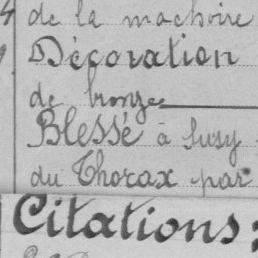 de la machoire
Décoration
de bronze
Blessé à Suzy
du Thorax par
Citations: